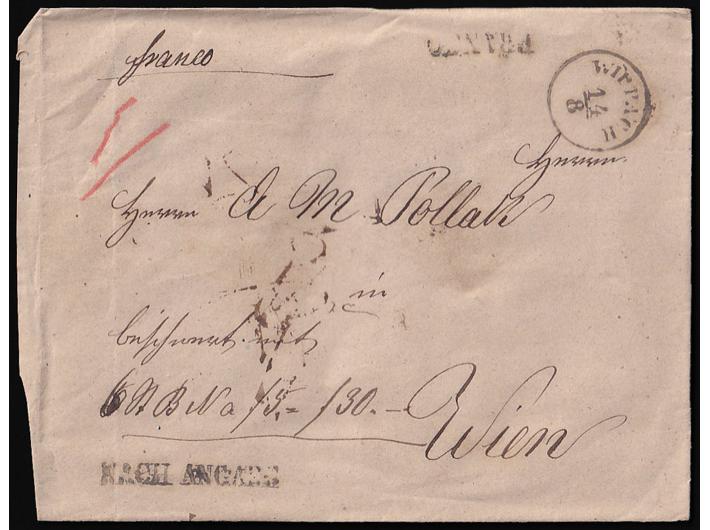 franco
FRANCO
WIPPACH
14
8
Herrn
Herrn A M Pollak
in
beschwert mit
6 St B Na /5.- /30.-
Wien
NACH ANGABE